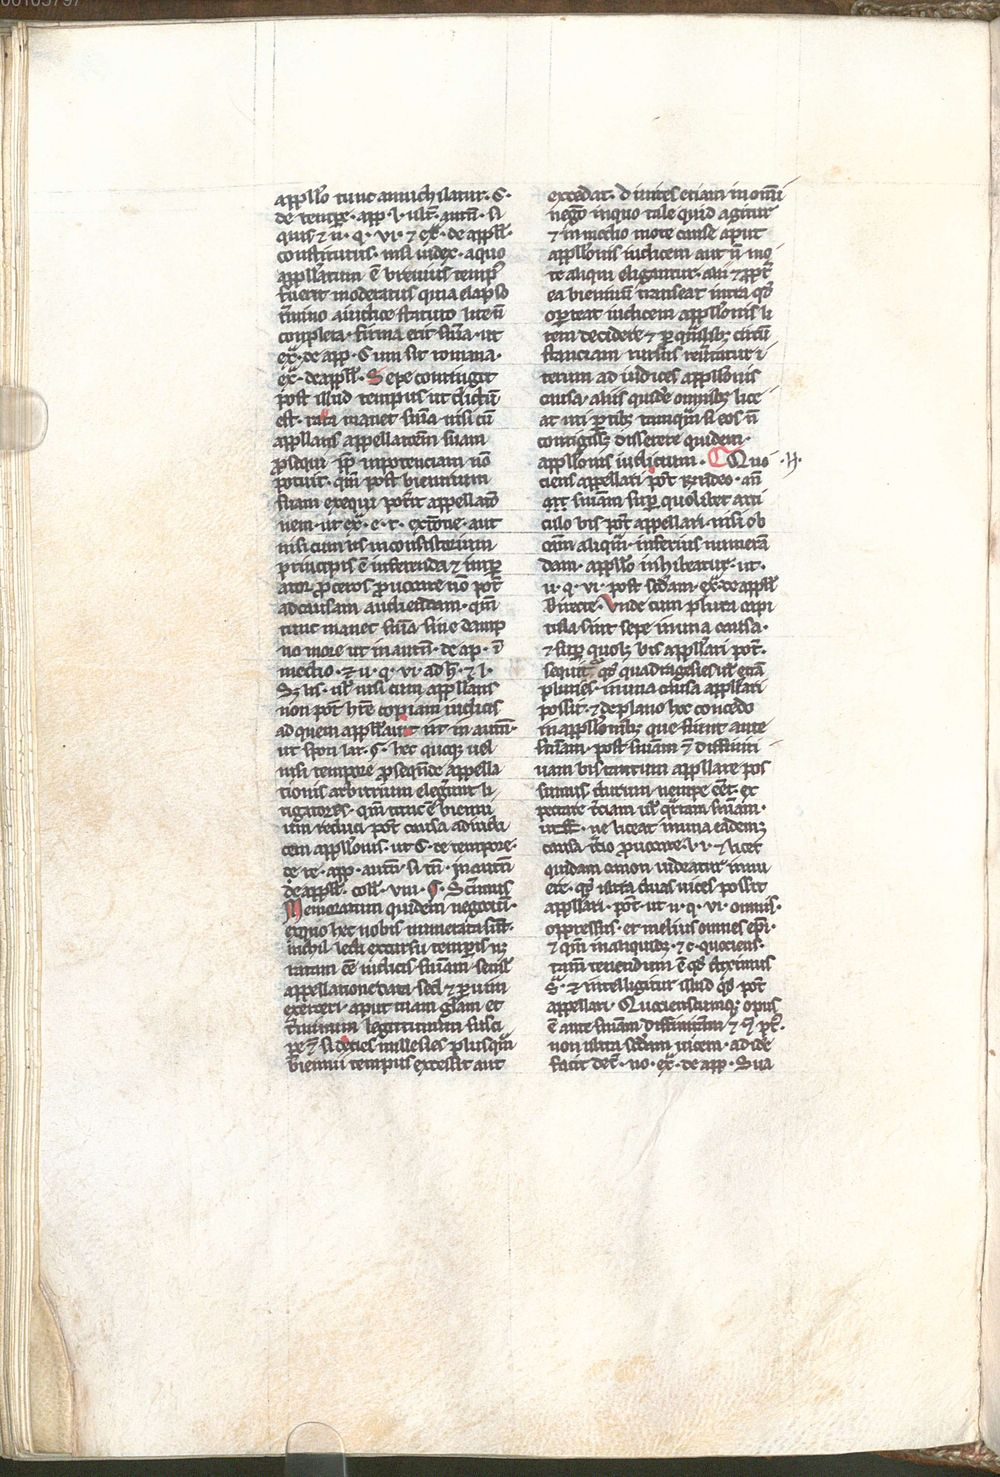 appllo tunc annichilatur. C.
de tempe. app. l. ult. autn. si
quis & ii. q. vi. & ex. de appll.
constitutus. nisi iudex. a quo
appllatum e breuius temp
fuerit moderatus quia elapso
tmino a iudice statuto lite n
completa. firma erit snia. ut
ex. de app. Cum sit romana.
ex. de appll. Sepe contingit
post illud tempus ut dictu
est. rata manet snia nisi cu
appllans appellatoem suam
psequi pp inpotenciam no
potuit. qm post biennium
suam exequi potit appellatio
nem. ut ex. e. t. ex aut
nisi cum is in consistorium
principis e inferenda & impe
ator pceres puocare no pot
ad causam audiendam. qm
tunc manet snia sine damp
no more ut in autn. de ap. i
medio. & ii. q. vi. ad h. & l.
Sz is. ul nisi cum appllans
non pot hre copiam iudicis
ad quem appllauit ut in autn.
ut spon lar. §. hec quoque uel
nisi tempore psequnde appella
tionis arbitrium elegerint li
tigatores. qm tunc e bienni
um reduci pot causa ad iudi
cem appllonis. ut C. de tempore.
de re. app. autn. si tn. in autn
de appll. coll. viii. §. Scimus
Memoratum quidem negotiu.
ei quo hec nobis nunciata sut.
nichil ledi excursu temporis nz
ratam ee iudicis sniam
appellatione dari sed & puim
exerceri. aput tuam glam et
tminum legittimum susci
pe & si decies millesies plusqm
biennii tempus excessit aut
excedat. diuites etiam in omi
nego in quo tale quid agitur
& in medio mote cause aput
appllonis iudicem aut n
te aliqui eligantur. alii & ppt
ea bienniu transeat intra qd
oporteat iudicem appllonis li
tem decidere & p qusslibz circu
stanciam rursus remittatur i
terum ad iudices appllonis
causa. aliis quide omnibz lice
at uti ptibz tamqum si eos n
contigisset disserere quidem.
appllonis iudicium. Quo .H.
ciens appellari pot Rndeo. an
qm sniam sup quolibet arti
culo bis pot appellari. nisi ob
cam aliqum. inferius numera
dam. appllo inhibeatur. ut.
ii. q. vi. post scdam. ex. de appll
Directe. Vnde cum plura capi
tula sint sepe in una causa.
& sup quolz bis appllari pot.
sequit qd quadragesies ul etia
pluries. in una causa appllari
possit. & de plano hoc concedo
in appllonibz que fiunt ante
sniam. post sniam & diffiniti
uam bis tantum appllare pos
sumus durum nempe eet. ex
pectare tciam ul qrtam sniam.
ut ff. ne liceat in una eademz
causa tcio puocare. l. i. & licet
quidam canon uideatur innu
ere. qd ultra duas uices possit
appllari. pot. ut ii. q. vi. omnis.
oppressus. et melius omnes epi.
& qm in aliquibz. & c. quociens.
tamen tenendum e qd diximus
S. & intelligitur illud qd pot
appellari. Quocienscumqz opus
e ante sniam diffinitam &
non ultra scdam uicem. ad ide
facit dec. no. ex. de app. Sua